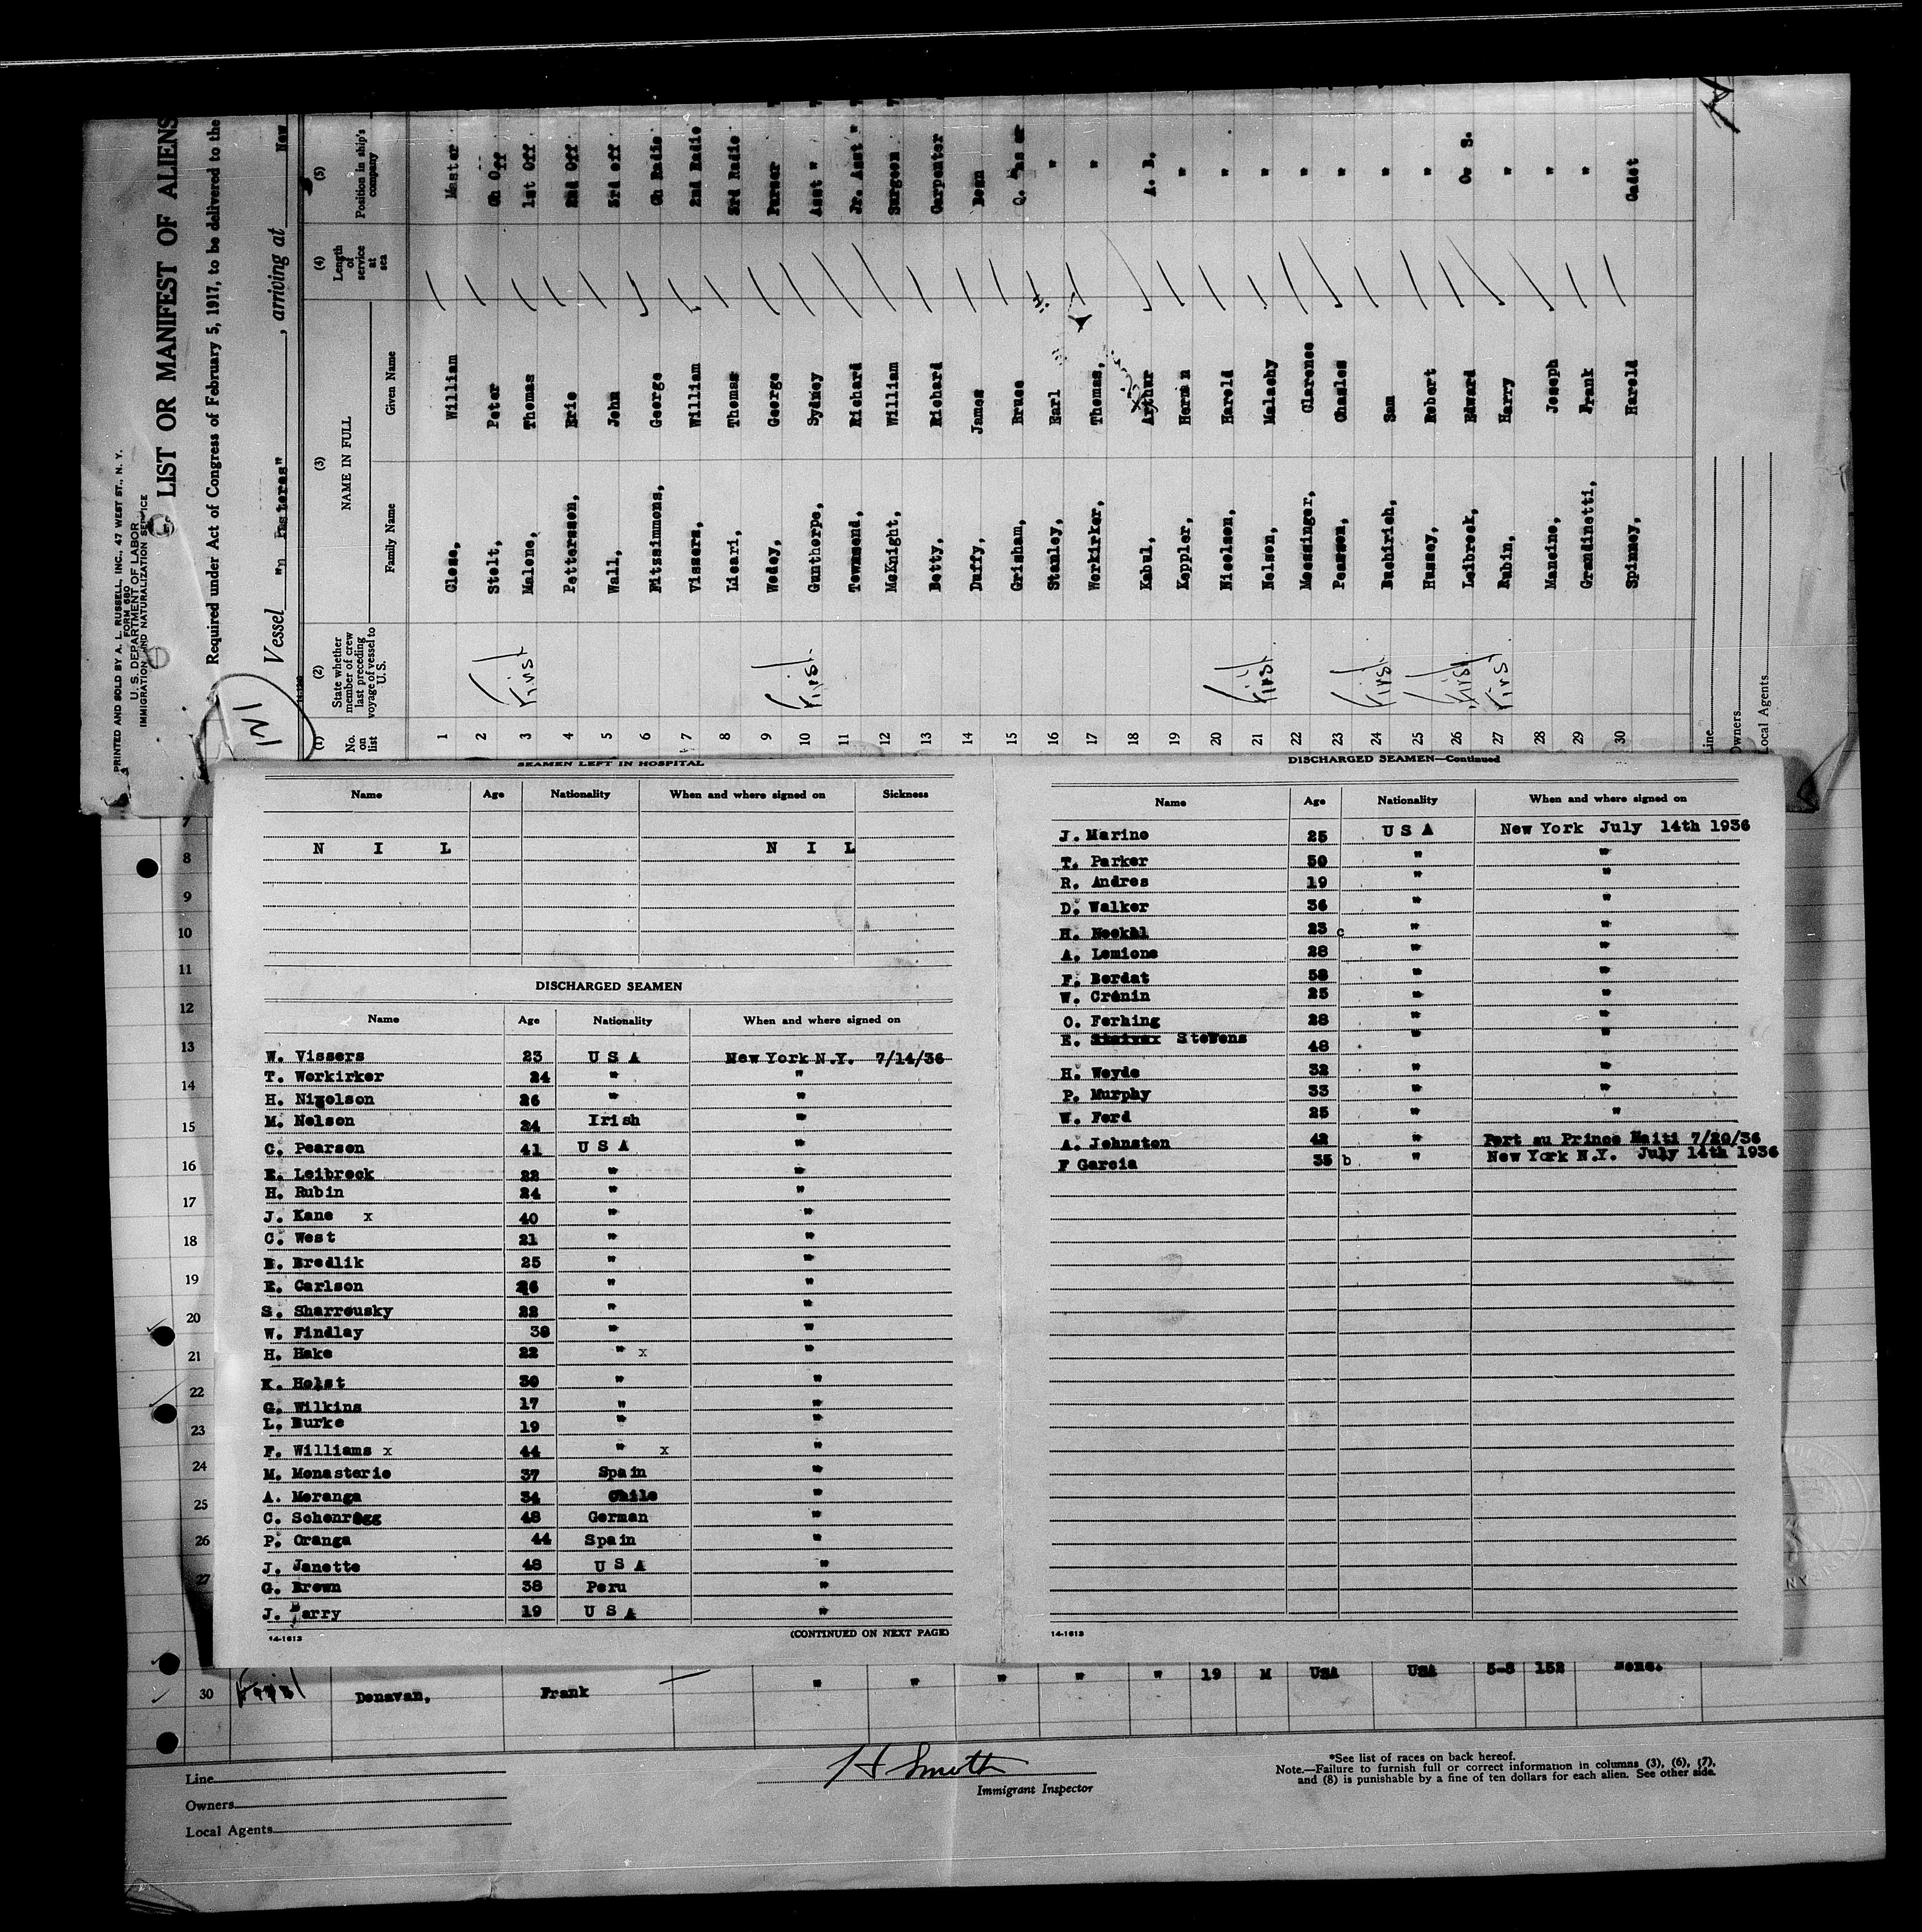 PRINTED AND SOLD BY A. L. RUSSELL, INC., 47 WEST ST., N. Y.
FORM 680
U. S. DEPARTMENT OF LABOR
IMMIGRATION AND NATURALIZATION SERVICE
LIST OR MANIFEST OF ALIENS
Required under Act of Congress of February 5, 1917, to be delivered to the
Vessel , arriving at New
(1) (2) (3) (4) (5)
No. on list
State whether member of crew last preceding voyage of vessel to U.S.
NAME IN FULL
Family Name Given Name
Length of service at sea
Position in ship's company
1 Close, William Master
2 First Stolt, Peter Ch Off
3 Malone, Thomas 1st Off
4 Pettersson, Eric 2nd Off
5 Wall, John 3rd off
6 Fitzsimmons, George Ch Radio
7 Vissers, William 2nd Radio
8 Licari, Thomas 3rd Radio
9 Wedey, George Purser
10 First Gunthorpe, Sydney Asst "
11 Townsend, Richard Jr. Asst "
12 McKnight, William Surgeon
13 Betty, Richard Carpenter
14 Duffy, James Bosn
15 Grisham, Bruce Q.
16 Stanley, Earl "
17 Workirker, Thomas, "
18 Kabul, Arthur A. B.
19 Keppler, Herman "
20 Nicolson, Harold "
21 First Nelson, Malachy "
22 Moessinger, Clarence "
23 Pearson, Chasles "
24 First Buchirich, Sam "
25 Hussey, Robert "
26 First Leibrock, Edward O. S.
27 First Rubin, Harry "
28 Mancine, Joseph "
29 Grandinetti, Frank "
30 Spinney, Harold Cadet
Line
Owners
Local Agents
SEAMEN LEFT IN HOSPITAL
Name Age Nationality When and where signed on Sickness
N I L N I L
DISCHARGED SEAMEN
Name Age Nationality When and where signed on
W. Vissers 23 U S A New York N.Y. 7/14/36
T. Workirker 24 " "
H. Nicolson 26 " "
M. Nelson 24 Irish "
C. Pearson 41 U S A "
E. Leibrock 22 " "
H. Rubin 24 " "
J. Kane x 40 " "
C. West 21 " "
E. Bredlik 25 " "
E. Carlson 26 " "
S. Sharrousky 22 " "
W. Findlay 38 " "
H. Hake 22 " x "
K. Holst 30 " "
G. Wilkins 17 " "
L. Burke 19 " "
F. Williams x 44 " x "
M. Monasterio 37 Spain "
A. Moranga 34 Chile "
C. Schonrogg 48 German "
P. Oranga 44 Spain "
J. Janette 48 U S A "
G. Brown 38 Peru "
J. Parry 19 U S A "
14-1613 (CONTINUED ON NEXT PAGE)
DISCHARGED SEAMEN—Continued
Name Age Nationality When and where signed on
J. Marino 25 U S A New York July 14th 1936
T. Parker 50 " "
R. Andres 19 " "
D. Walker 36 " "
H. Neckal 23 c " "
A. Lemione 28 " "
F. Berdat 58 " "
W. Cronin 25 " "
O. Ferhing 28 " "
E. Stevens 48 " "
H. Weyde 32 " "
P. Murphy 33 " "
W. Ford 25 " "
A. Johnston 42 " Port au Prince Haiti 7/20/36
F Garcia 35 b " New York N.Y. July 14th 1936
14-1613
7
8
9
10
11
12
13
14
15
16
17
18
19
20
21
22
23
24
25
26
27
30 First Donavan, Frank " " " " " 19 M USA USA 5-8 152 None.
Line
Owners
Local Agents
H Smith
Immigrant Inspector
*See list of races on back hereof.
Note.—Failure to furnish full or correct information in columns (3), (6), (7),
and (8) is punishable by a fine of ten dollars for each alien. See other side.